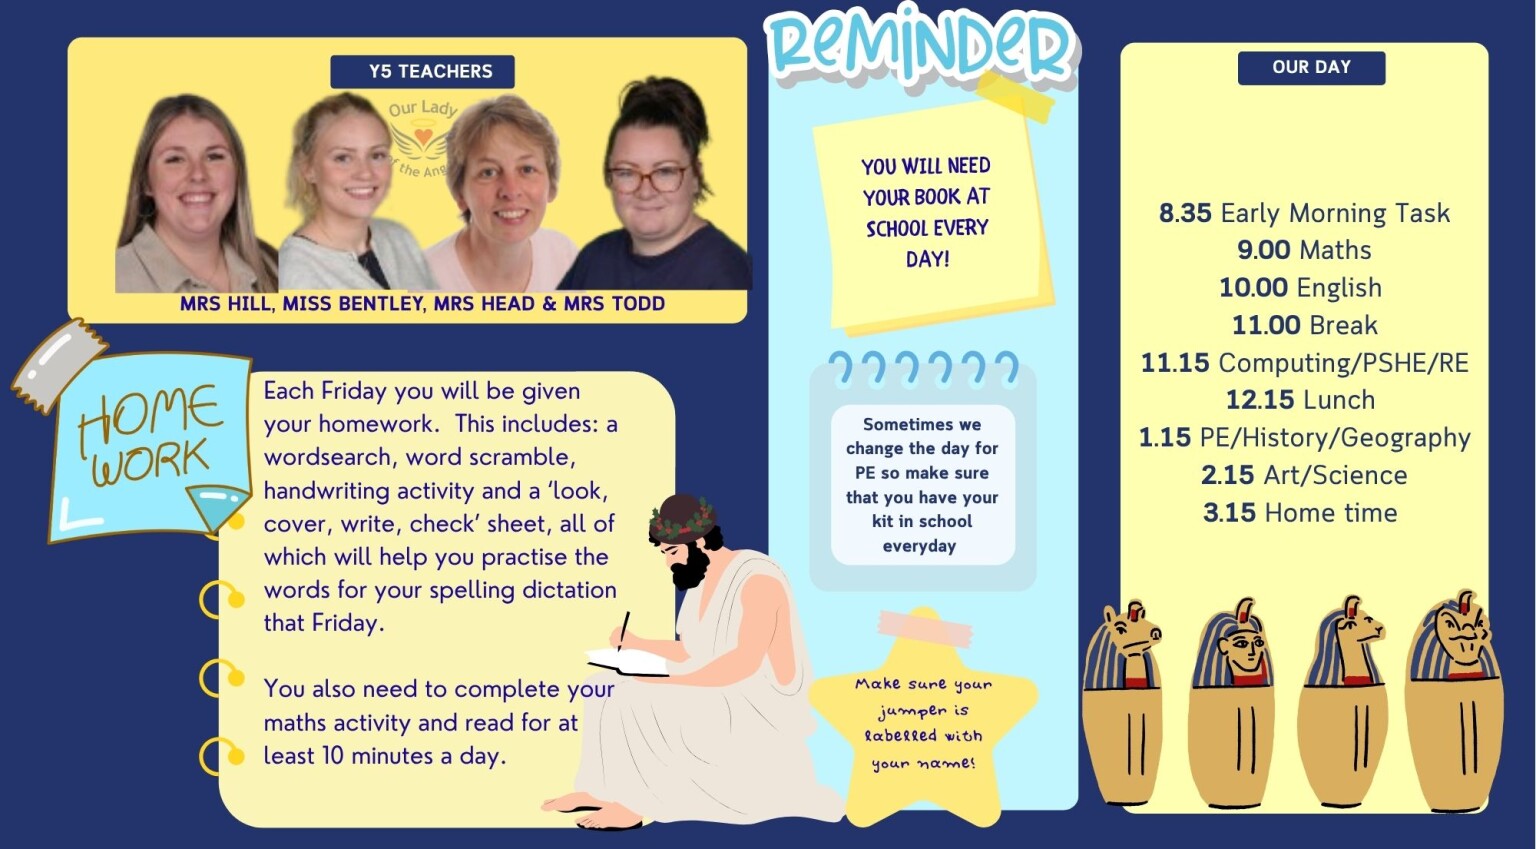 Y5 TEACHERS
Our Lady
of the Ang
MRS HILL, MISS BENTLEY, MRS HEAD & MRS TODD
HOME
WORK
Each Friday you will be given
your homework. This includes: a
wordsearch, word scramble,
handwriting activity and a ‘look,
cover, write, check’ sheet, all of
which will help you practise the
words for your spelling dictation
that Friday.
You also need to complete your
maths activity and read for at
least 10 minutes a day.
REMINDER
YOU WILL NEED
YOUR BOOK AT
SCHOOL EVERY
DAY!
Sometimes we
change the day for
PE so make sure
that you have your
kit in school
everyday
Make sure your
jumper is
labelled with
your name!
OUR DAY
8.35 Early Morning Task
9.00 Maths
10.00 English
11.00 Break
11.15 Computing/PSHE/RE
12.15 Lunch
1.15 PE/History/Geography
2.15 Art/Science
3.15 Home time